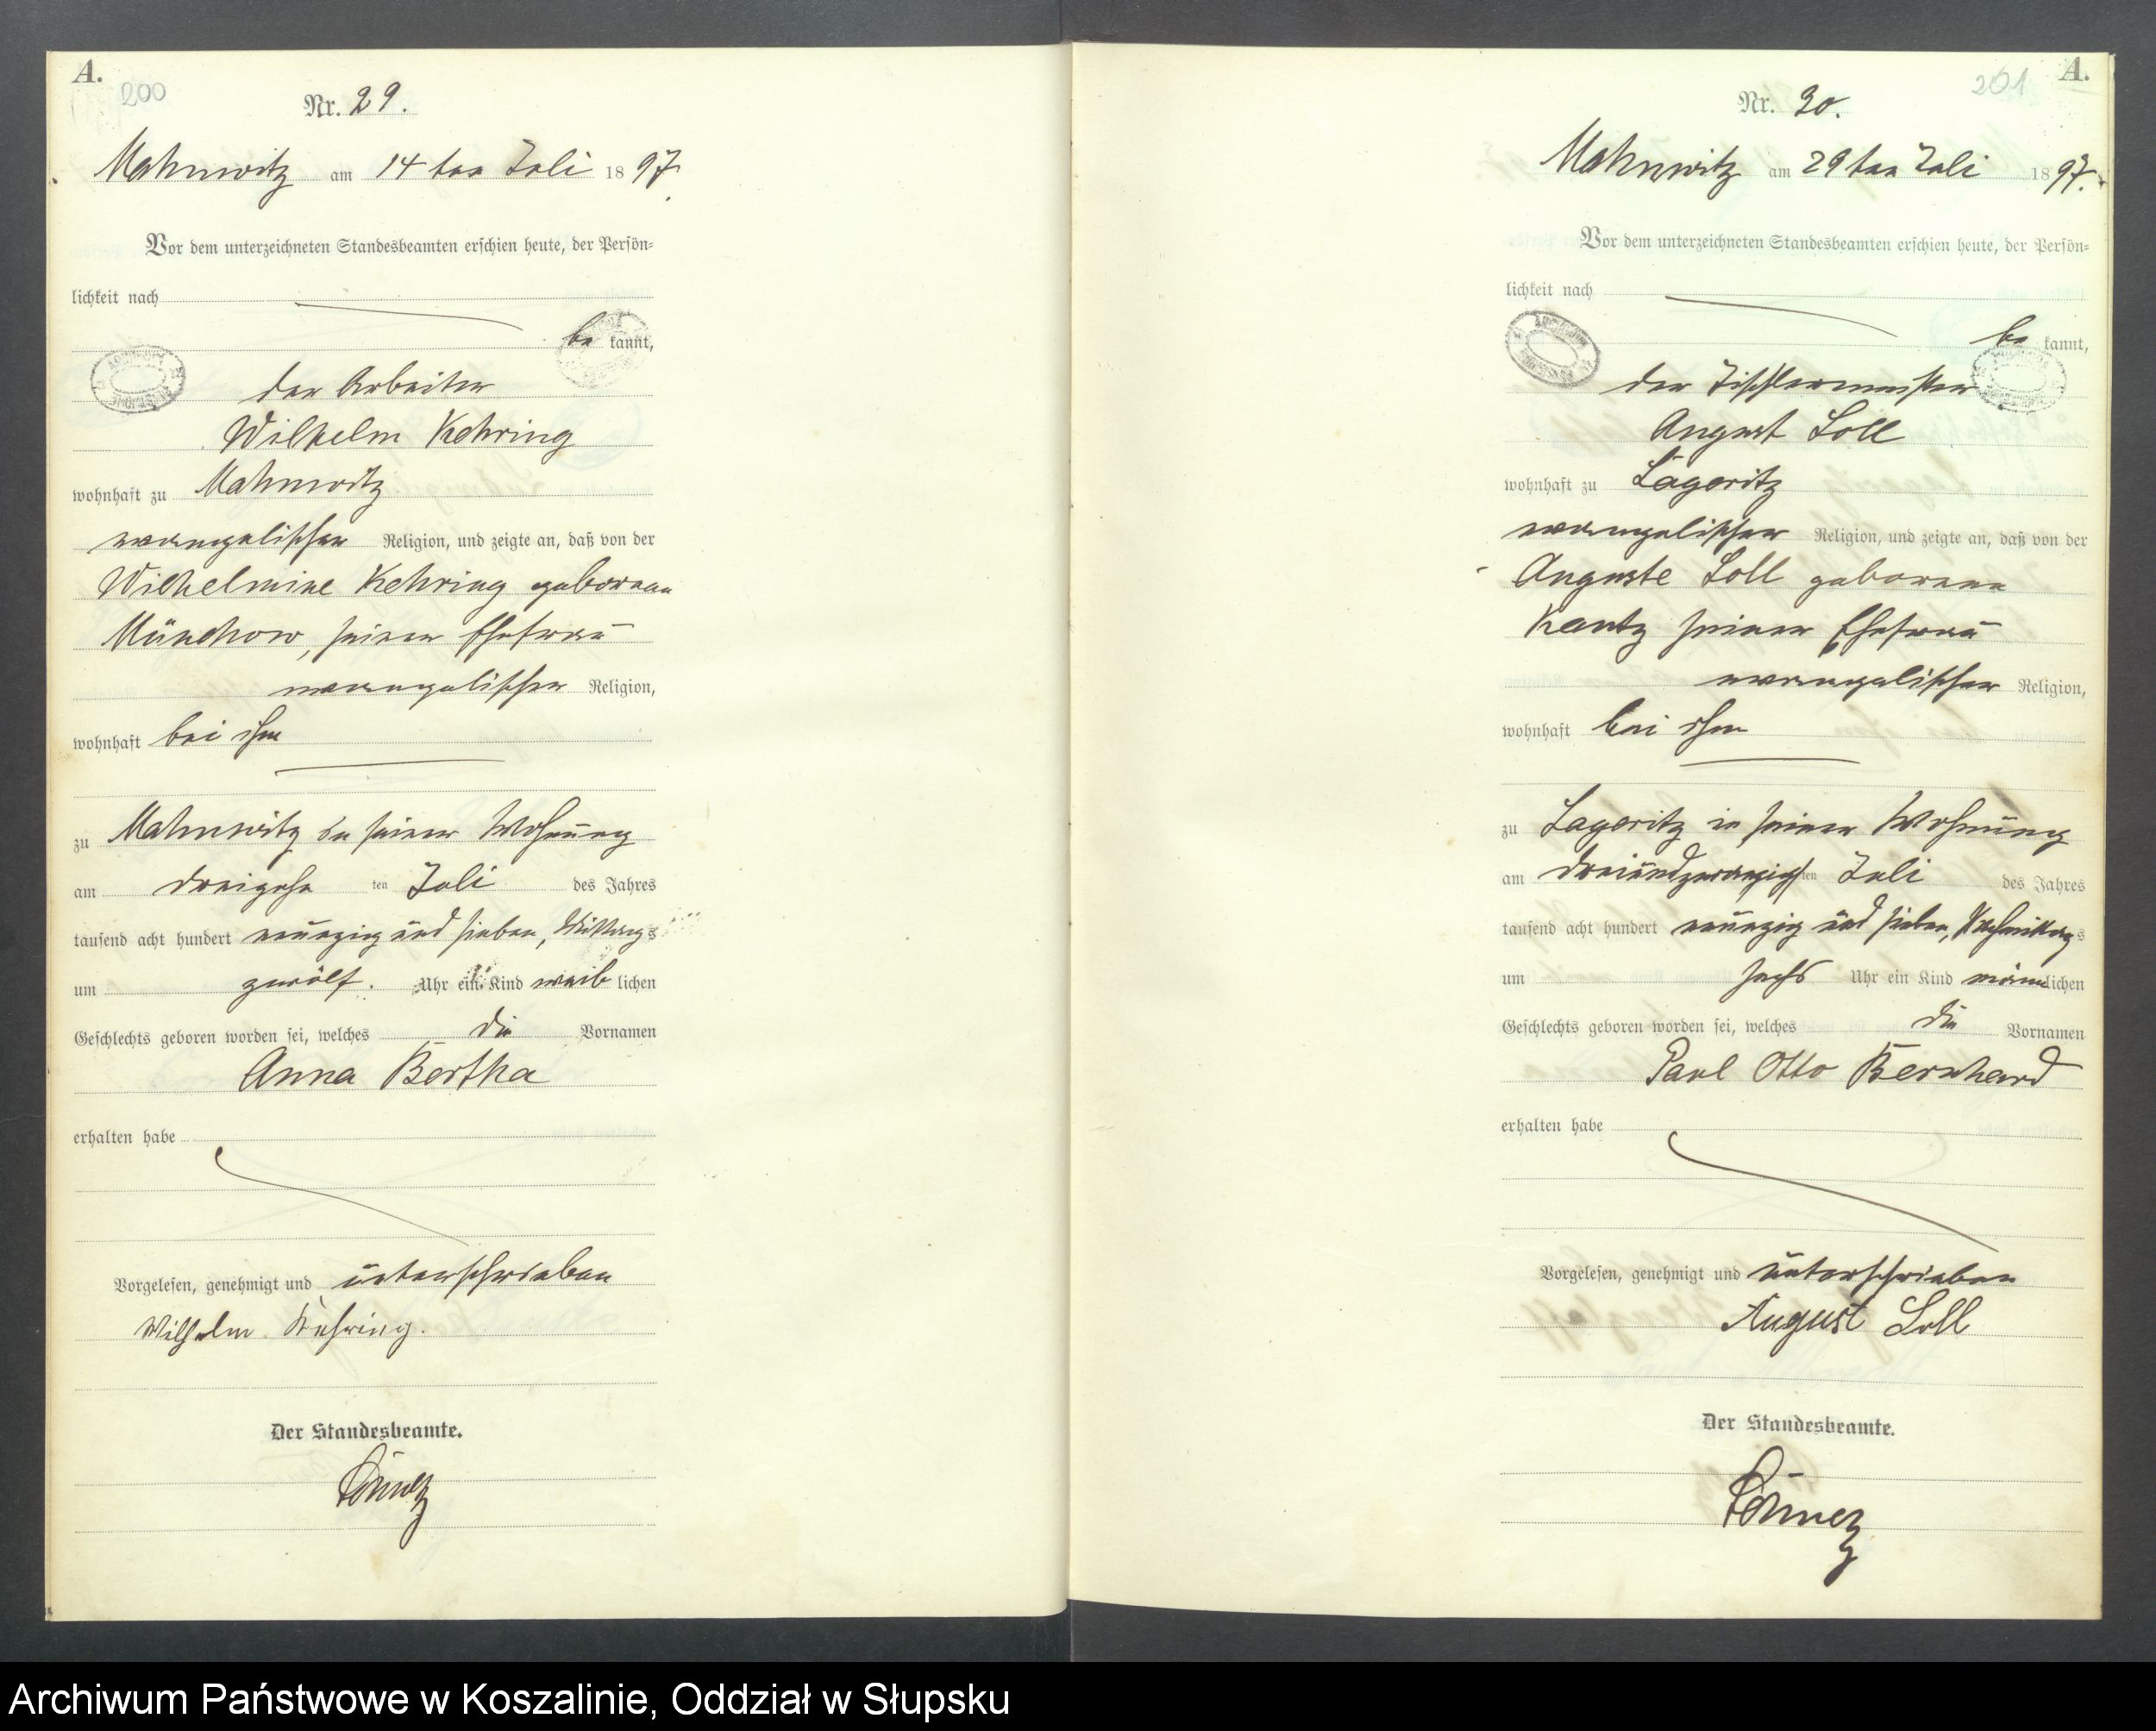 A.
200
Nr. 29.
Mahnwitz am 14 ten Juli 1897.
Vor dem unterzeichneten Standesbeamten erschien heute, der Persön-
lichkeit nach
be kannt,
der Arbeiter
Wilhelm Kehring
wohnhaft zu Mahnwitz
evangelischer Religion, und zeigte an, daß von der
Wilhelmine Kehring geborenen
Münchow, seiner Ehefrau
evangelischer Religion,
wohnhaft bei ihm
zu Mahnwitz in seiner Wohnung
am dreizehn ten Juli des Jahres
tausend acht hundert neunzig und sieben, Mittags
um zwölf Uhr ein Kind weib lichen
Geschlechts geboren worden sei, welches die Vornamen
Anna Bertha
erhalten habe
Vorgelesen, genehmigt und unterschrieben
Wilhelm Kehring.
Der Standesbeamte.
201
A.
Nr. 30.
Mahnwitz am 29 ten Juli 1897.
Vor dem unterzeichneten Standesbeamten erschien heute, der Persön-
lichkeit nach
be kannt,
der Tischlermeister
August Soll
wohnhaft zu Lagoritz
evangelischer Religion, und zeigte an, daß von der
Auguste Soll geborene
Kantz seiner Ehefrau
evangelischer Religion,
wohnhaft bei ihm
zu Lagoritz in seiner Wohnung
am dreiundzwanzigsten Juli des Jahres
tausend acht hundert neunzig und sieben, Nachmittags
um sechs Uhr ein Kind männlichen
Geschlechts geboren worden sei, welches die Vornamen
Paul Otto Bernhard
erhalten habe
Vorgelesen, genehmigt und unterschrieben
August Soll
Der Standesbeamte.
Archiwum Państwowe w Koszalinie, Oddział w Słupsku